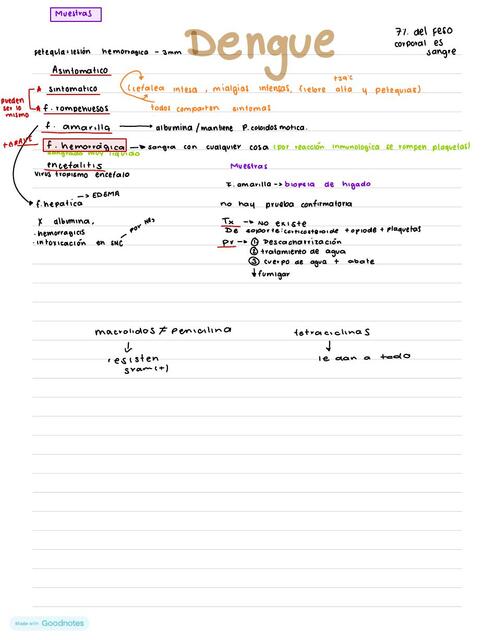 Muestras
Dengue
7% del peso
corporal es
sangre
petequia: lesión hemorragica - 3mm
Asintomatico
+39°C
sintomatico
(cefalea intesa, mialgias intensas, fiebre alta y petequias)
pueden
ser lo
mismo
f. rompehuesos
todos comparten sintomas
f. amarilla → albumina / mantiene P. coloidosmotica.
+GRAVE
f. hemorrágica → sangra con cualquier cosa (por reacción inmunologica se rompen plaquetas)
sangrado muy liquido
encefalitis
virus tropismo encefalo
Muestras
F. amarilla → biopsia de higado
f. hepatica → EDEMA
no hay prueba confirmatoria
x albumina,
· hemorragicos
· intoxicación en SNC
por NH3
Tx → No existe
De soporte: corticosteroide + opiode + plaquetas
Pr → ① Descacharrización
② tratamiento de agua
③ cuerpo de agua + abate
↓ fumigar
macrolidos ≠ penicilina
↓
resisten
gram (+)
tetraciclinas
↓
le dan a todo
Made with Goodnotes